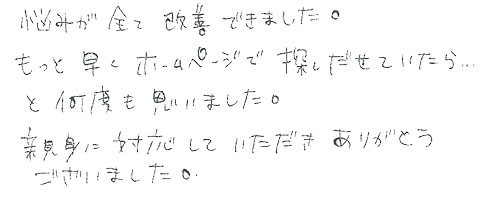 悩みが全て改善できました。
もっと早くホームページで探しだせていたら…
と何度も思いました。
親身に対応していただきありがとう
ございました。